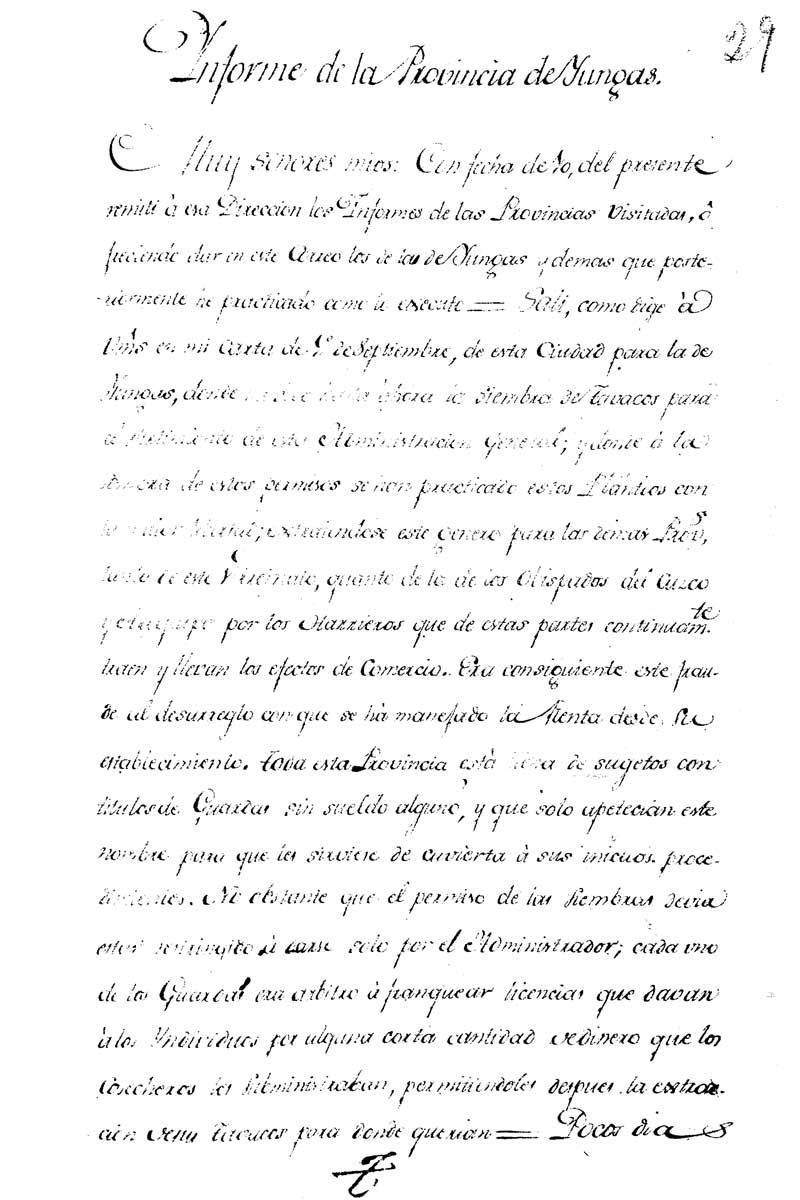 29
Informe de la Provincia de Yungas.
Muy señores mios: Con fecha de 10, del presente
remiti à esa Direccion los Informes de las Provincias Visitadas, ô
freciendo dar en este Correo los de las de Yungas y demas que poste-
riormente he practicado como lo executo = Sali, como dige à
Vms en mi Carta de de Septiembre, de esta Ciudad para la de
Yungas, donde hasta ahora la siembra de Tavacos para
el de esta Administracion General; y à la
sombra de estos permisos se han practicado estos Plantios con
la libertad; extraiendose este genero para las demas Provs,
tanto de este Virreinato, quanto de la de los Obispados del Cuzco
y Arequipa por los Harrieros que de estas partes continuamte
traen y llevan los efectos de Comercio. Era consiguiente este frau-
de al desarreglo con que se ha manejado la Renta desde su
establecimiento. Toda esta Provincia està llena de sugetos con
titulos de Guardas sin sueldo alguno, y que solo apetecian este
nombre para que les sirviese de cuvierta à sus iniquos proce-
dimientos. No obstante que el permiso de las siembras devia
estar restringido à darse solo por el Administrador; cada uno
de los Guardas era arbitro à franquear licencias que davan
à los Yndividuos por alguna corta cantidad de dinero que los
Cosecheros les Administraban, permitiendoles despues la extrac-
cion de sus Tavacos para donde querian = Pocos dias